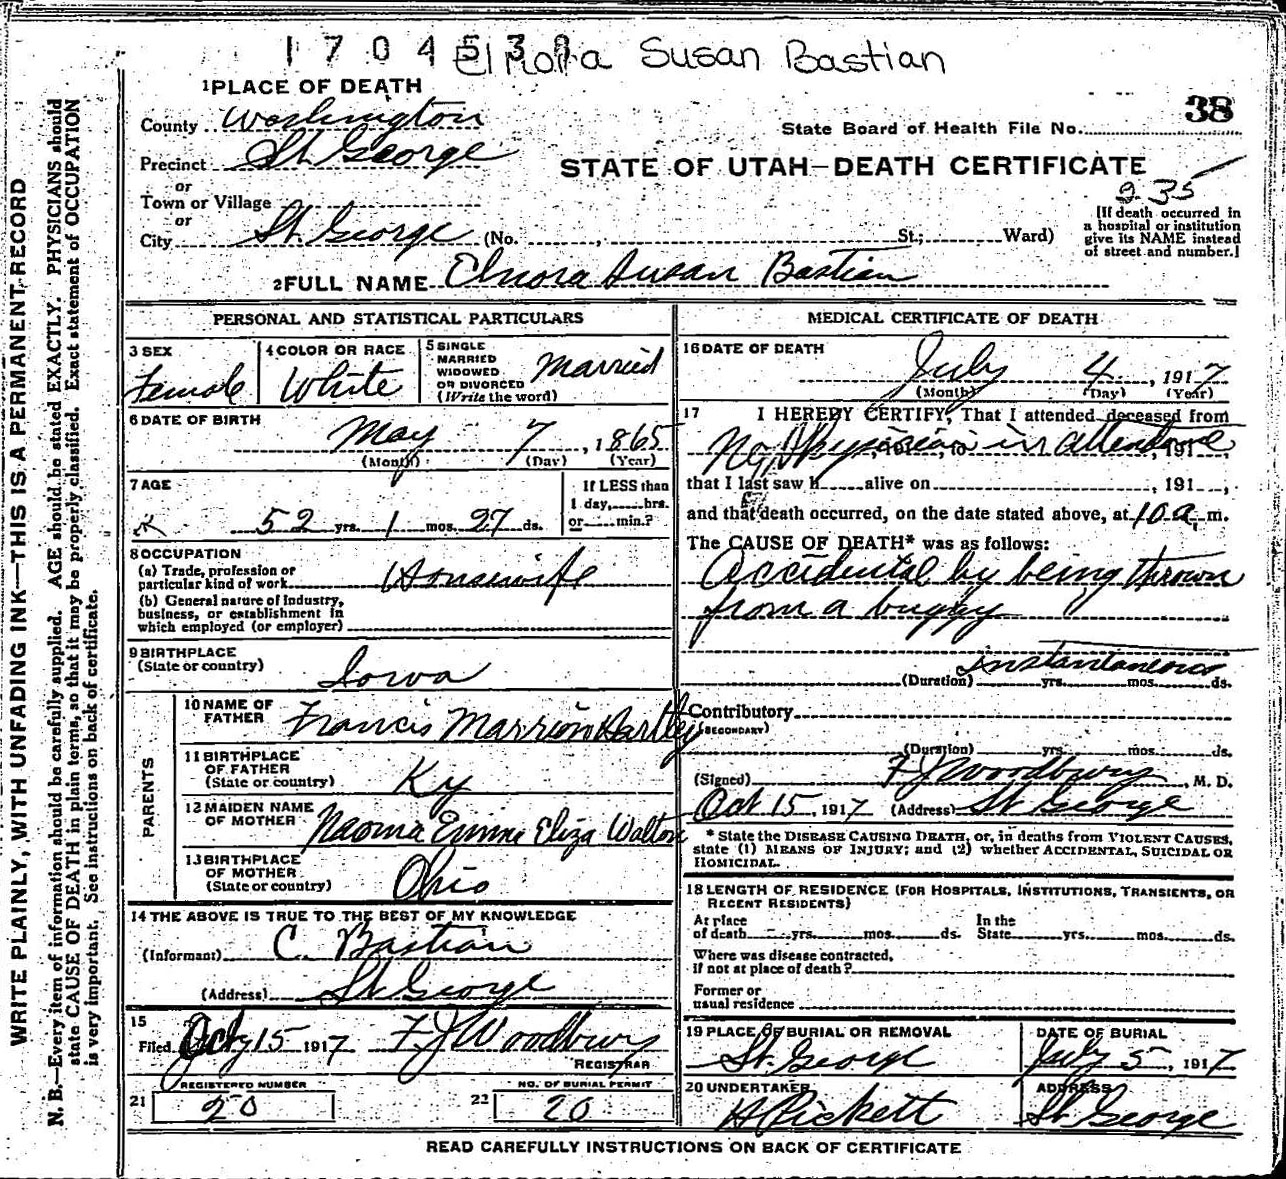 1704538
Elnora Susan Bastian
1 PLACE OF DEATH
County Washington
Precinct St. George
or
Town or Village
or
City St. George (No. , St.; Ward)
State Board of Health File No. 38
STATE OF UTAH—DEATH CERTIFICATE
235
[If death occurred in
a hospital or institution
give its NAME instead
of street and number.]
2 FULL NAME Elnora Susan Bastian
WRITE PLAINLY, WITH UNFADING INK—THIS IS A PERMANENT RECORD
N. B.—Every item of information should be carefully supplied. AGE should be stated EXACTLY. PHYSICIANS should
state CAUSE OF DEATH in plain terms, so that it may be properly classified. Exact statement of OCCUPATION
is very important. See instructions on back of certificate.
PERSONAL AND STATISTICAL PARTICULARS
3 SEX
Female
4 COLOR OR RACE
White
5 SINGLE
MARRIED
WIDOWED
OR DIVORCED
(Write the word)
Married
6 DATE OF BIRTH
May 7, 1865
(Month) (Day) (Year)
7 AGE
52 yrs. 1 mos. 27 ds.
If LESS than
1 day, hrs.
or min.?
8 OCCUPATION
(a) Trade, profession or
particular kind of work Housewife
(b) General nature of industry,
business, or establishment in
which employed (or employer)
9 BIRTHPLACE
(State or country)
Iowa
PARENTS
10 NAME OF
FATHER
Francis Marrion Hartley
11 BIRTHPLACE
OF FATHER
(State or country)
Ky
12 MAIDEN NAME
OF MOTHER
Naoma Emma Eliza Walton
13 BIRTHPLACE
OF MOTHER
(State or country)
Ohio
14 THE ABOVE IS TRUE TO THE BEST OF MY KNOWLEDGE
(Informant) C. Bastian
(Address) St George
15
Filed Oct 15 1917 F J Woodbury
REGISTRAR
REGISTERED NUMBER
21 20
NO. OF BURIAL PERMIT
22 20
MEDICAL CERTIFICATE OF DEATH
16 DATE OF DEATH
July 4, 1917
(Month) (Day) (Year)
17 I HEREBY CERTIFY, That I attended deceased from
No Physician in attendance
, 191 , to , 191 ,
that I last saw h alive on , 191 ,
and that death occurred, on the date stated above, at 10 a. m.
The CAUSE OF DEATH* was as follows:
Accidental by being thrown
from a buggy
instantaneous
(Duration) yrs. mos. ds.
Contributory
(SECONDARY)
(Duration) yrs. mos. ds.
(Signed) F J Woodbury, M. D.
Oct 15, 1917 (Address) St George
* State the DISEASE CAUSING DEATH, or, in deaths from VIOLENT CAUSES,
state (1) MEANS OF INJURY; and (2) whether ACCIDENTAL, SUICIDAL OR
HOMICIDAL.
18 LENGTH OF RESIDENCE (FOR HOSPITALS, INSTITUTIONS, TRANSIENTS, OR
RECENT RESIDENTS)
At place
of death yrs. mos. ds.
In the
State yrs. mos. ds.
Where was disease contracted,
if not at place of death?
Former or
usual residence
19 PLACE OF BURIAL OR REMOVAL
St. George
DATE OF BURIAL
July 5, 1917
20 UNDERTAKER
H Pickett
ADDRESS
St George
READ CAREFULLY INSTRUCTIONS ON BACK OF CERTIFICATE